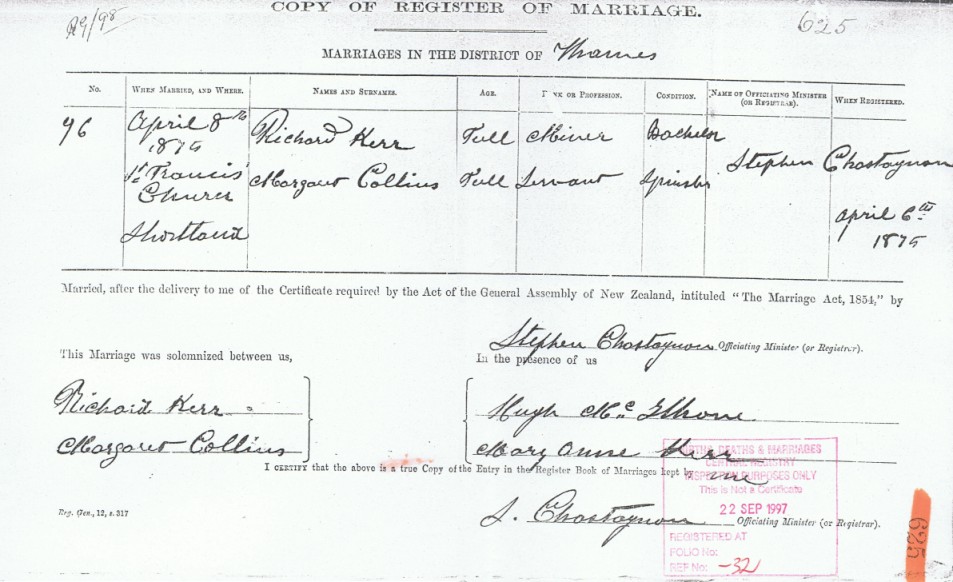 COPY OF REGISTER OF MARRIAGE.
R9/98
625
MARRIAGES IN THE DISTRICT OF Thames
No. WHEN MARRIED, AND WHERE. NAMES AND SURNAMES. AGE. OR PROFESSION. CONDITION. NAME OF OFFICIATING MINISTER (OR REGISTRAR). WHEN REGISTERED.
96 April 8th 1875 Richard Kerr Full Miner Bachelor
St. Francis' Church Shortland Margaret Collins Full Servant Spinster
Stephen Chastagnon
April 6th 1875
Married, after the delivery to me of the Certificate required by the Act of the General Assembly of New Zealand, intituled "The Marriage Act, 1854," by
Stephen Chastagnon Officiating Minister (or Registrar).
This Marriage was solemnized between us,
In the presence of us
Richard Kerr
Hugh Mc
Margaret Collins
Mary Anne Kerr
I CERTIFY that the above is a true Copy of the Entry in the Register Book of Marriages kept by me
S. Chastagnon Officiating Minister (or Registrar).
Reg. Gen., 12, s. 317
BIRTHS, DEATHS & MARRIAGES
CENTRAL REGISTRY
INSPECTION PURPOSES ONLY
This is Not a Certificate
22 SEP 1997
REGISTERED AT
FOLIO No:
REF No: -32
625